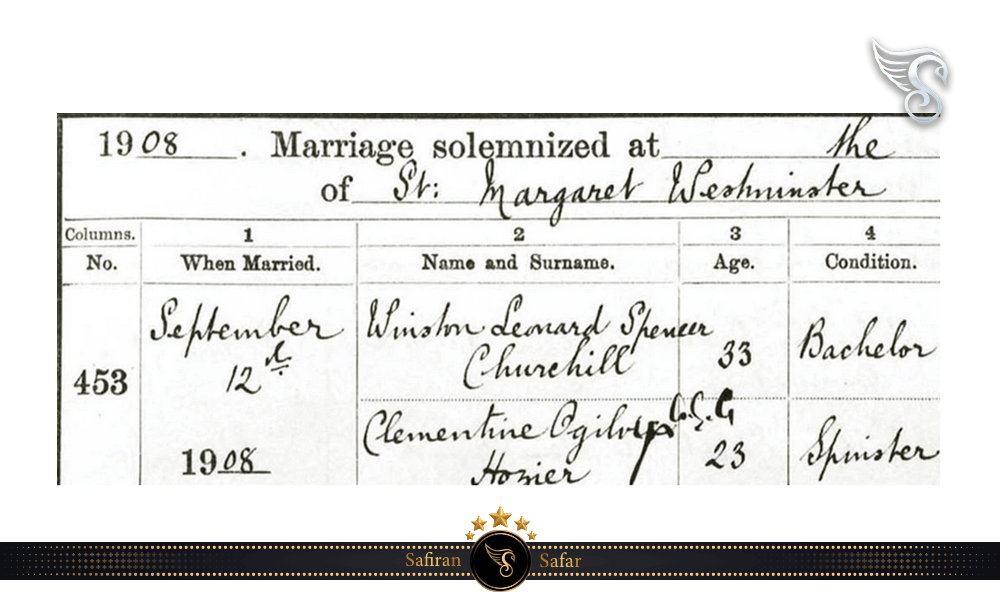 1908 . Marriage solemnized at the
of St: Margaret Westminster
Columns. 1 2 3 4
No. When Married. Name and Surname. Age. Condition.
September Winston Leonard Spencer
12th Churchill 33 Bachelor
453
Clementine Ogilvy
1908 Hozier 23 Spinster
Safiran Safar